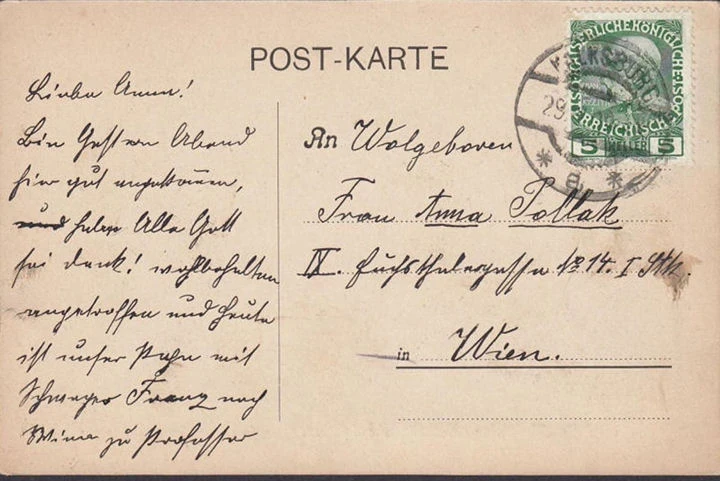 POST-KARTE
Liebe Anna!
Bin Gestern Abend
hier gut angekommen,
und habe Alle Gott
sei dank! wohlbehalten
angetroffen und heute
ist unser mit
Schwager Franz nach
Wien zu Professor
An Wolgeboren
Frau Anna Pollak
IX. Fuchsthalergasse № 14. I Stk.
in Wien.
KALKSBURG
29
* a *
KAISERLICHE KÖNIGLICHE ÖSTERREICHISCHE
5 HELLER 5